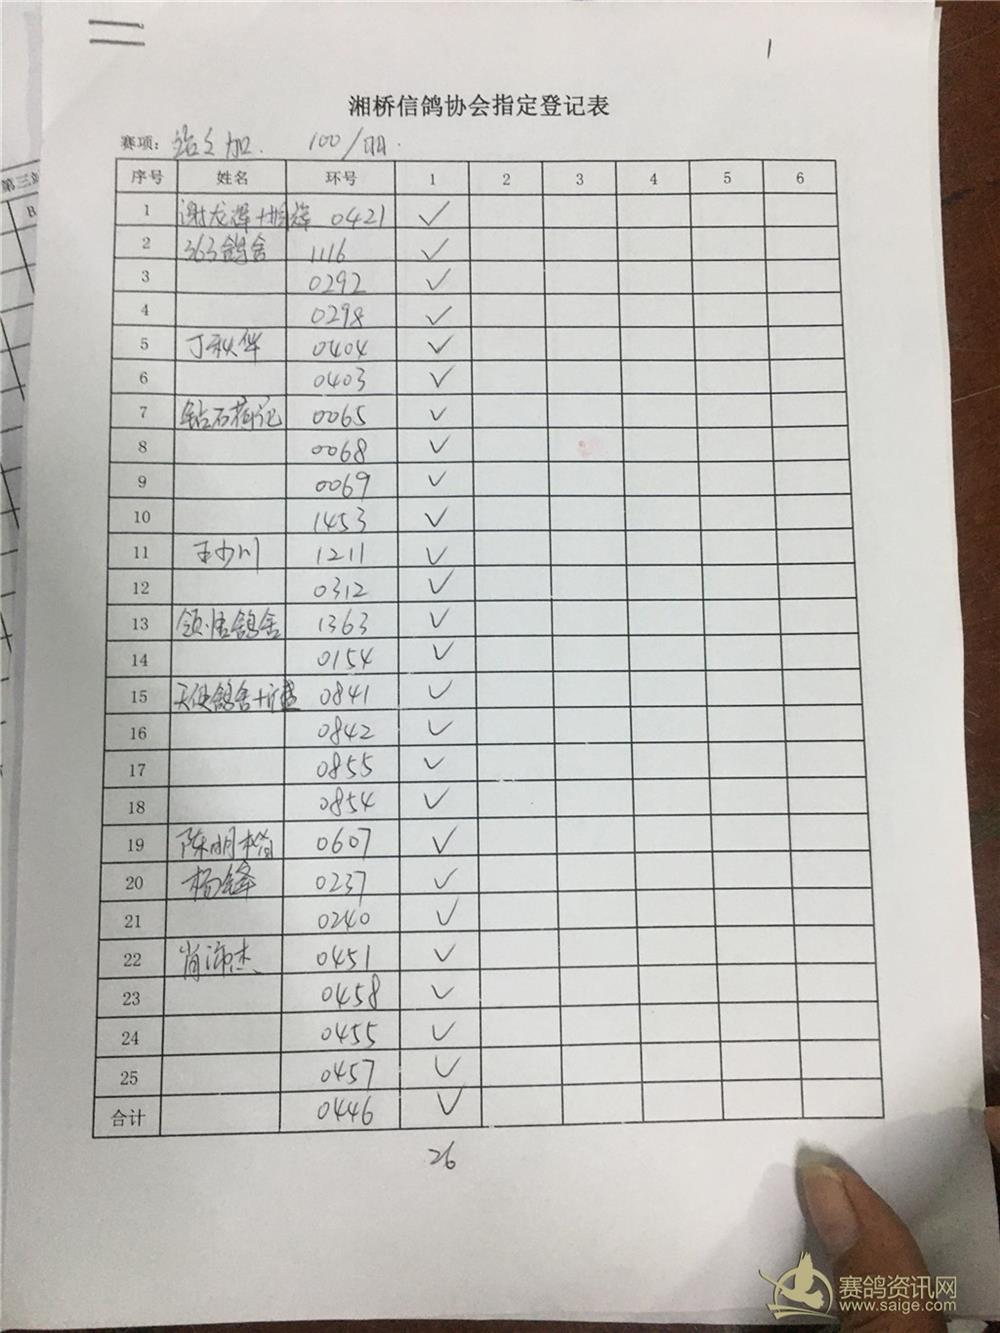 1
湘桥信鸽协会指定登记表
赛项: 站之加. 100/羽.
序号 姓名 环号 1 2 3 4 5 6
1 谢龙辉+ 0421 ✓
2 363鸽舍 1116 ✓
3 0292 ✓
4 0298 ✓
5 丁秋伟 0404 ✓
6 0403 ✓
7 钻石荷记 0065 ✓
8 0068 ✓
9 0069 ✓
10 1453 ✓
11 王少川 1211 ✓
12 0312 ✓
13 领悟鸽舍 1363 ✓
14 0154 ✓
15 天使鸽舍+ 0841 ✓
16 0842 ✓
17 0855 ✓
18 0854 ✓
19 陈明楷 0607 ✓
20 杨锋 0237 ✓
21 0240 ✓
22 肖沛杰 0451 ✓
23 0458 ✓
24 0455 ✓
25 0457 ✓
合计 0446 ✓
26
第三站
B
赛鸽资讯网
www.saige.com